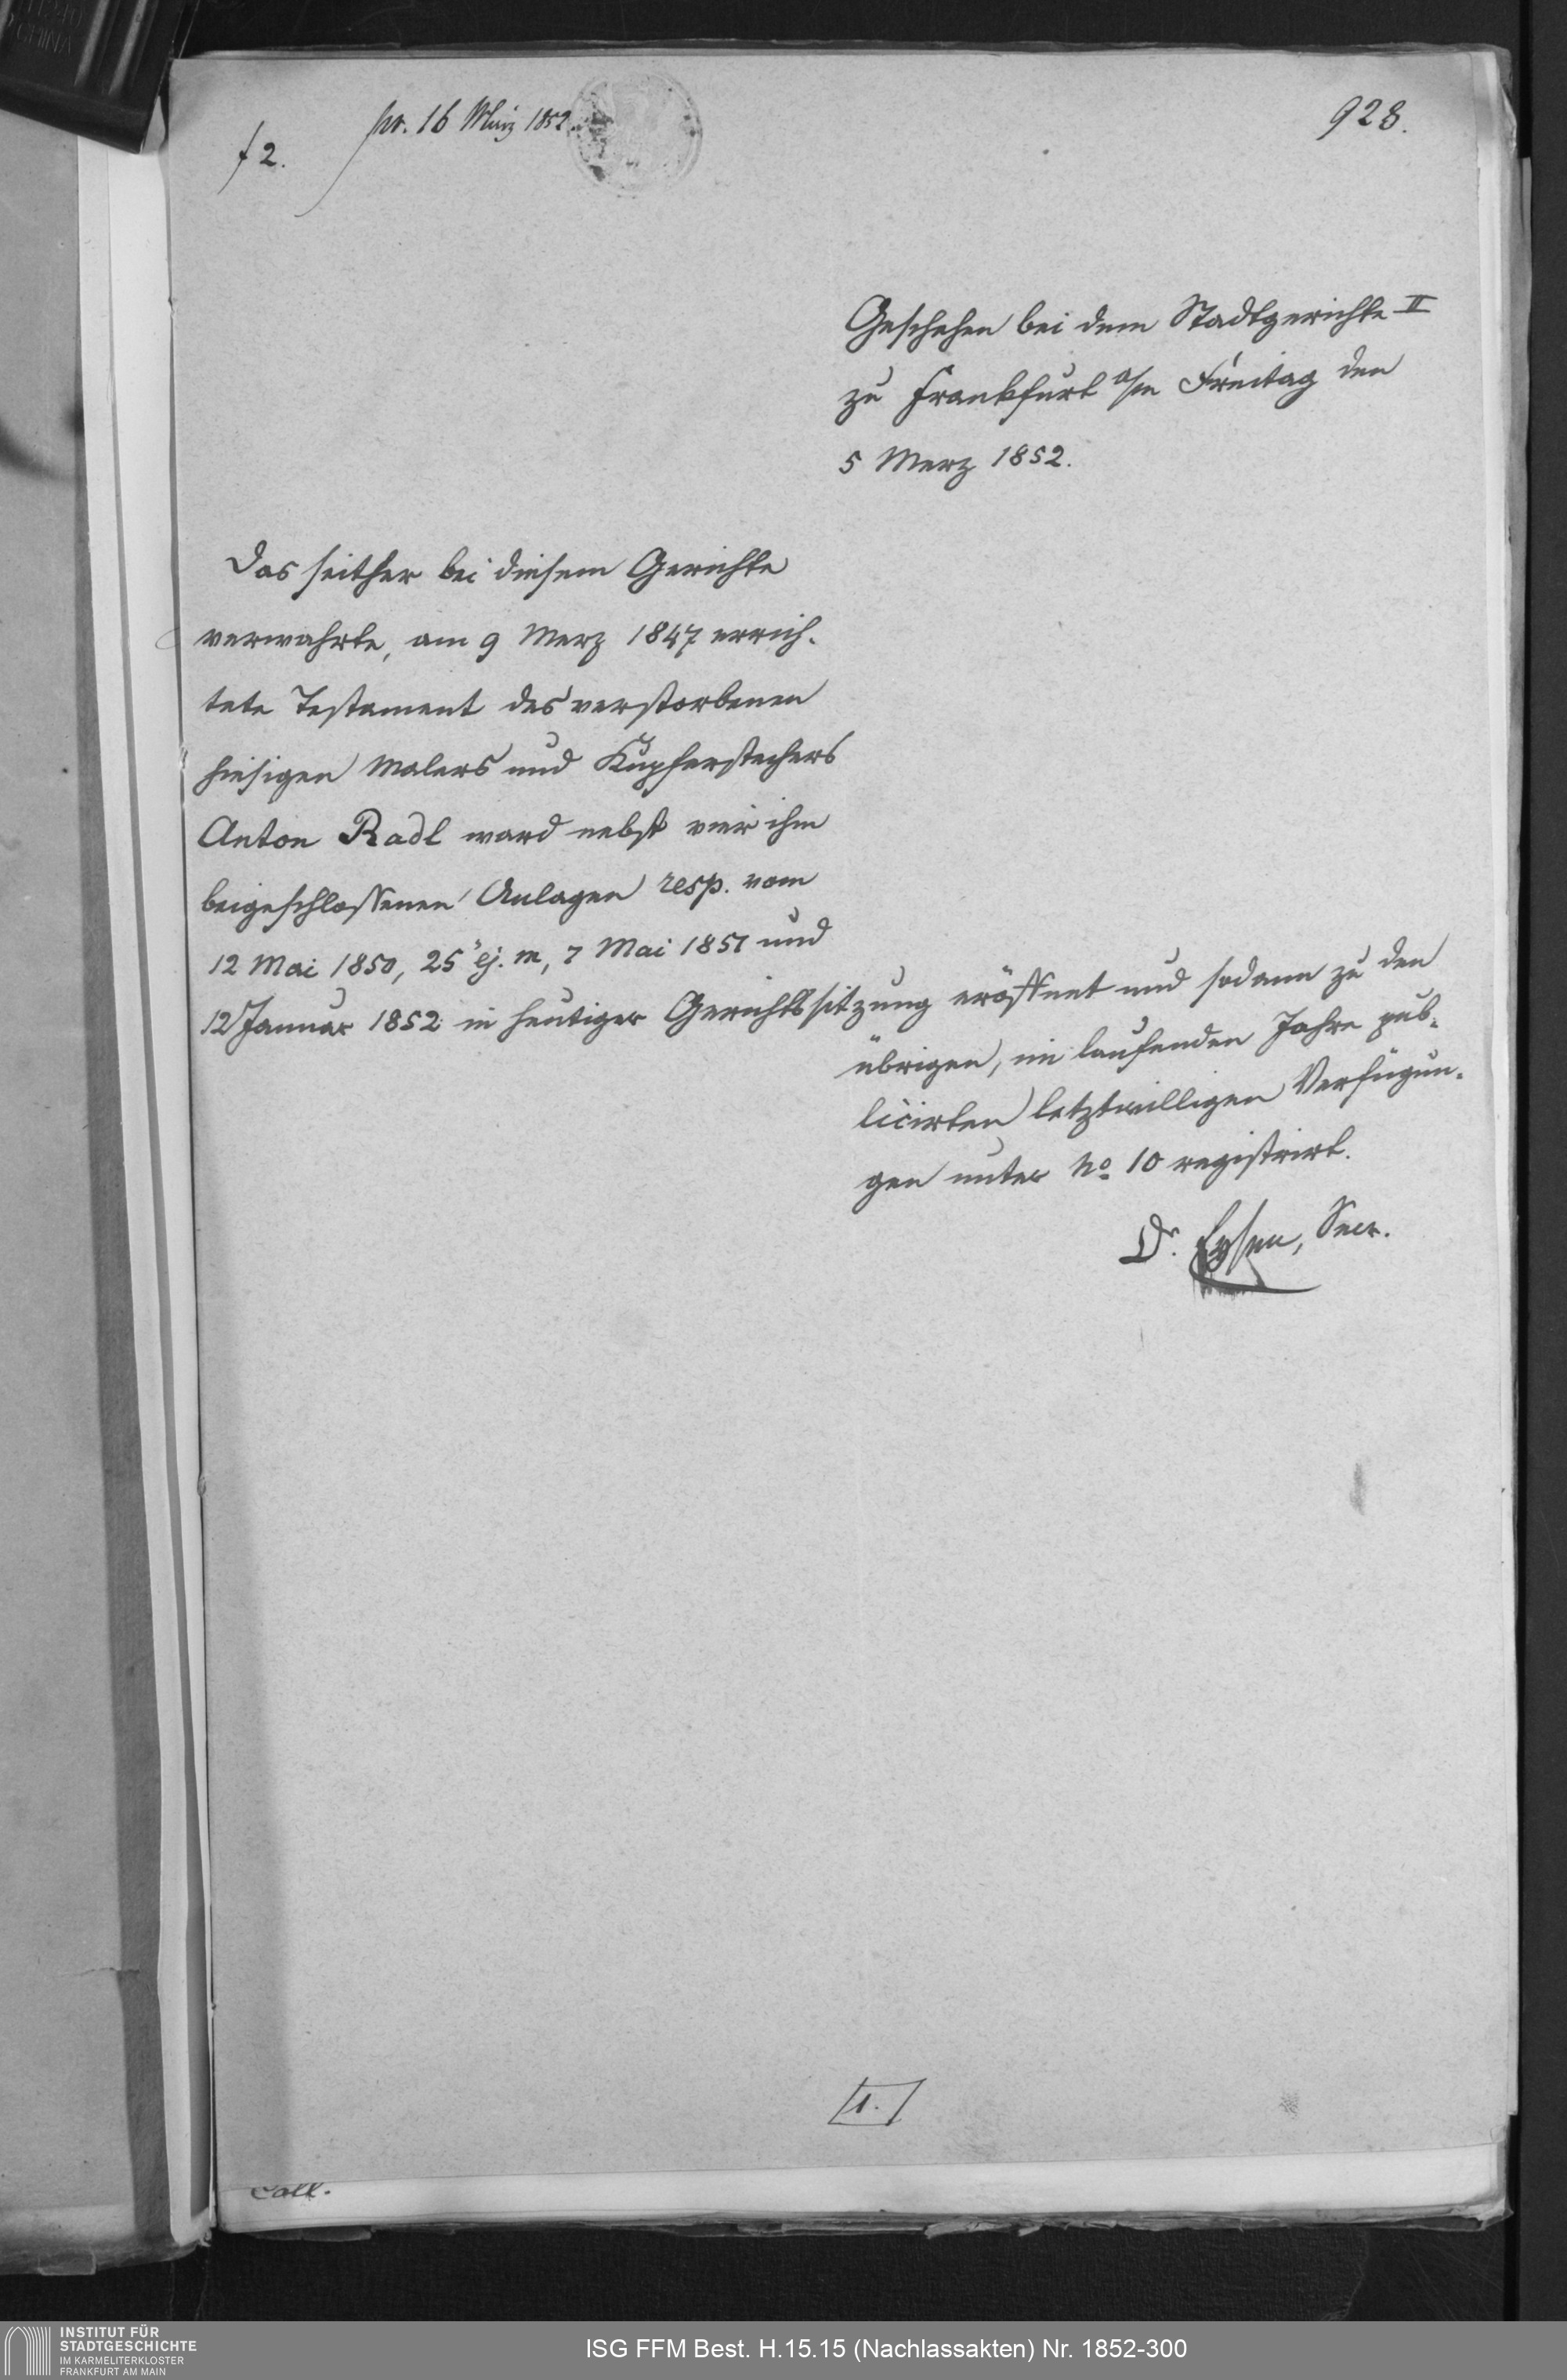 pr. 16 März 1852
928.
f 2.
Geschehen bei dem Stadtgerichte II
zu Frankfurt a/m Freitag den
5 Merz 1852.
Das seither bei diesem Gerichte
verwahrte, am 9 Merz 1847 errich-
tete Testament des verstorbenen
hiesigen Malers und Kupferstechers
Anton Radl ward nebst vier ihm
beigeschlossenen Anlagen resp. vom
12 Mai 1850, 25 ej. m, 7 Mai 1851 und
12 Januar 1852 in heutiger Gerichtssitzung eröffnet und sodann zu den
übrigen, im laufenden Jahre pub-
licirten letztwilligen Verfügun-
gen unter No 10 registrirt.
Dr. Eysen, Secr.
1.
Coll.
INSTITUT FÜR
STADTGESCHICHTE
IM KARMELITERKLOSTER
FRANKFURT AM MAIN
ISG FFM Best. H.15.15 (Nachlassakten) Nr. 1852-300